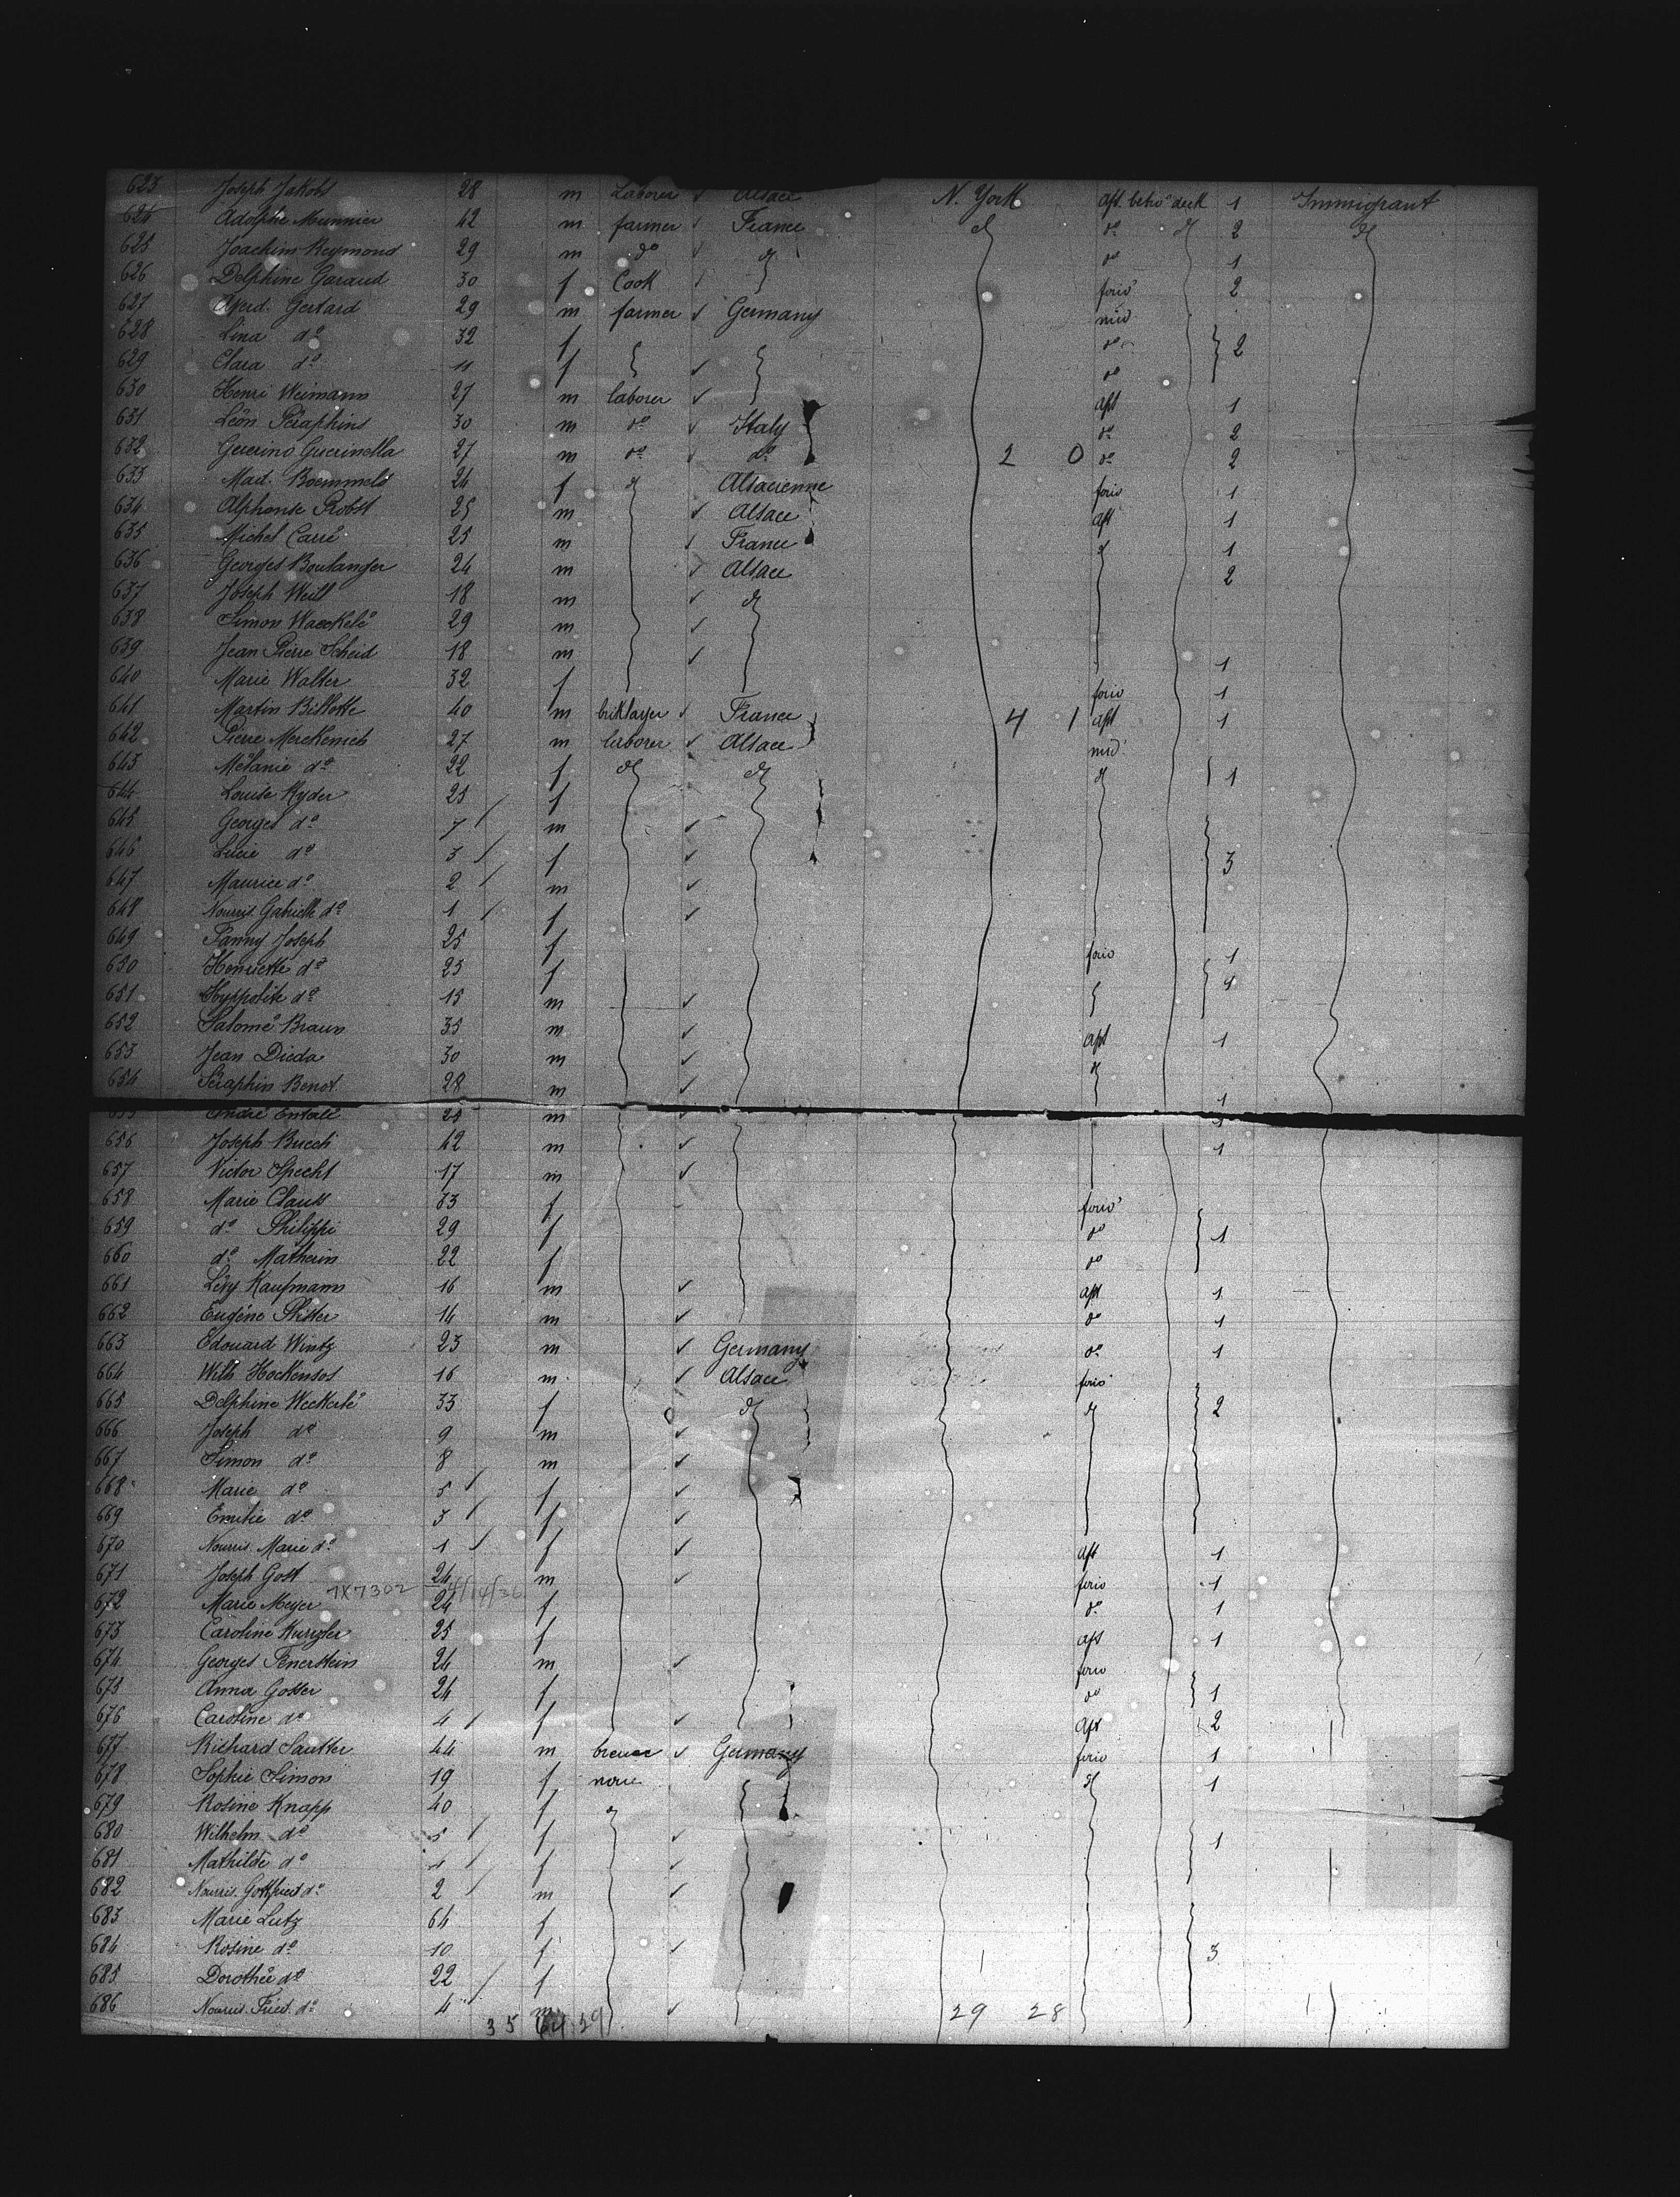 623 Joseph Jakobs 28 m Laborer ✓ Alsace N. York aft. betw deck 1 Immigrant
624 Adolphe Meunnier 42 m farmer ✓ France do 2
625 Joachim Reymond 29 m do ✓ do 1
626 Delphine Garaud 30 f Cook ✓ forw 2
627 Gerhard 29 m farmer ✓ Germany mid
628 Lina do 32 f do 2
629 Clara do 11 f ✓ do
630 Henri Weimann 27 m laborer ✓ aft 1
631 Léon Séraphins 30 m do ✓ Italy do 2
632 Guerino Guerinella 27 m do ✓ do 2 0 do 2
633 Mad. Boemmels 24 f Alsacienne forw 1
634 Alphonse Probst 25 m ✓ Alsace aft 1
635 Michel Carré 25 m ✓ France 1
636 Georges Boulanger 24 m ✓ Alsace 2
637 Joseph Weill 18 m ✓
638 Simon Waeckelé 29 m ✓
639 Jean Pierre Scheid 18 m ✓ 1
640 Marie Walter 32 f forw 1
641 Martin Billotte 40 m briklayer ✓ France 4 1 aft 1
642 Pierre Merckensch 27 m laborer ✓ Alsace mid
643 Mélanie do 22 f 1
644 Louise Ryder 25 f
645 Georges do 7 m ✓
646 Lucie do 3 f ✓ 3
647 Maurice do 2 m ✓
648 Nourris. Gabrielle do 1 f ✓
649 Fanny Joseph 25 f forw 1
650 Henriette do 23 f
651 Hyppolite do 15 m ✓
652 Salomé Braun 35 m ✓ aft 1
653 Jean Dieda 30 m ✓
654 Séraphin Benot 28 m ✓ 1
655 André 25 m ✓
656 Joseph Buech 42 m ✓ 1
657 Victor Specht 17 m ✓
658 Marie Clauss 33 f forw
659 do Philippi 29 f do 1
660 do Matherin 22 f do
661 Lévy Kaufmann 16 m ✓ aft 1
662 Eugène Pfister 14 m ✓ do 1
663 Edouard Wintz 23 m ✓ Germany do 1
664 Wilh Hockensos 16 m ✓ Alsace forw
665 Delphine Weckerlé 33 f 2
666 Joseph do 9 m ✓
667 Simon do 8 m ✓
668 Marie do 5 f ✓
669 Emilie do 3 f ✓
670 Nourris. Marie do 1 f ✓ aft 1
671 Joseph Gost 24 m ✓ forw 1
7X7302 4/14/36
672 Marie Meyer 24 f do 1
673 Caroline Kunzler 25 f aft 1
674 Georges Fenerstein 24 m ✓ forw
675 Anna Gosser 24 f do 1
676 Caroline do 4 f ✓ aft 2
677 Richard Sautter 44 m brewer ✓ Germany forw 1
678 Sophie Simon 19 f none 1
679 Rosine Knapp 40 f
680 Wilhelm do 5 f ✓ 1
681 Mathilde do 4 f ✓
682 Nourris. Gottfried do 2 m ✓
683 Marie Lutz 64 f
684 Rosine do 10 f ✓ 3
685 Dorothée do 22 f
686 Nourris. Fried. do 4 m ✓ 29 28
35 64 29